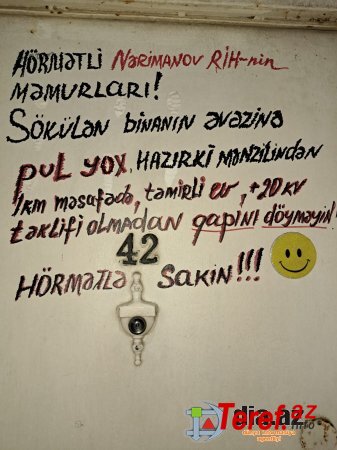 HÖRMƏTLİ NƏRİMANOV RİH-nin
MƏMURLARI!
SÖKÜLƏN BİNANIN ƏVƏZİNƏ
PUL YOX, HAZIRKI MƏNZİLİNDƏN
1km məsafədə, təmirli ev, +20 kv
təklifi olmadan qapını döyməyin!
42
HÖRMƏTLƏ SAKİN!!!
Teref.az